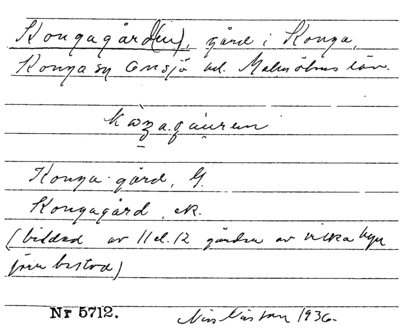 Kongagård(en), gård i Konga,
Konga sn Onsjö hd. Malmöhus län.
Konga gård, G.
Kongagård, ek.
(bildad av 11 el. 12 gårdar av vilka byn
förr bestod)
Nr 5712. 1936.